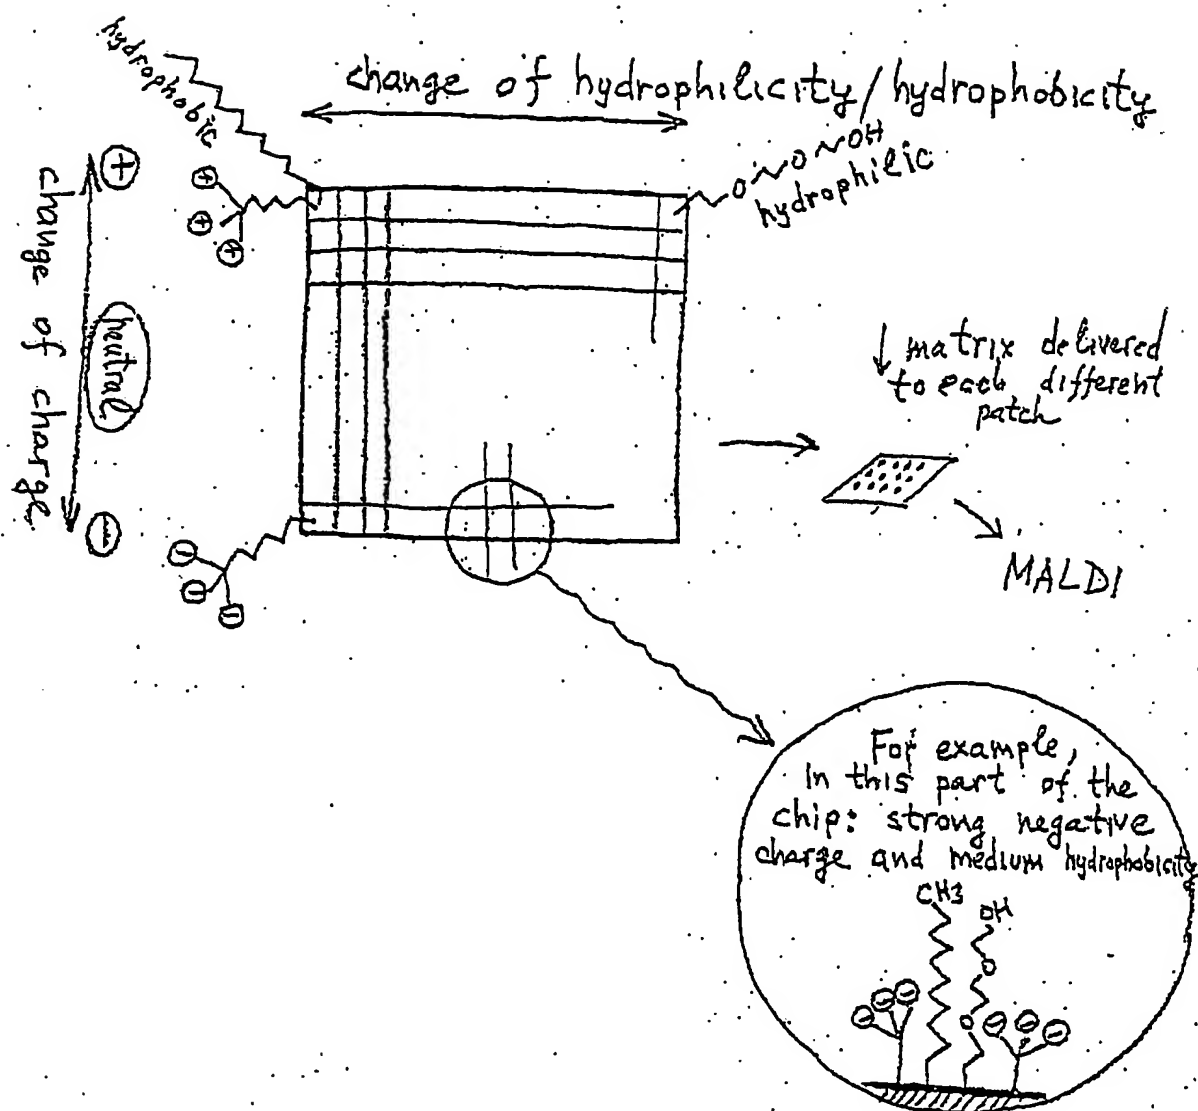 hydrophobic
change of hydrophilicity/hydrophobicity
O O OH
hydrophilic
change of charge
+
neutral
−
+
+
+
↓ matrix delivered
to each different
patch
MALDI
−
−
−
For example,
In this part of the
chip: strong negative
charge and medium hydrophobicity
CH3 OH
O
O
− − − − − −